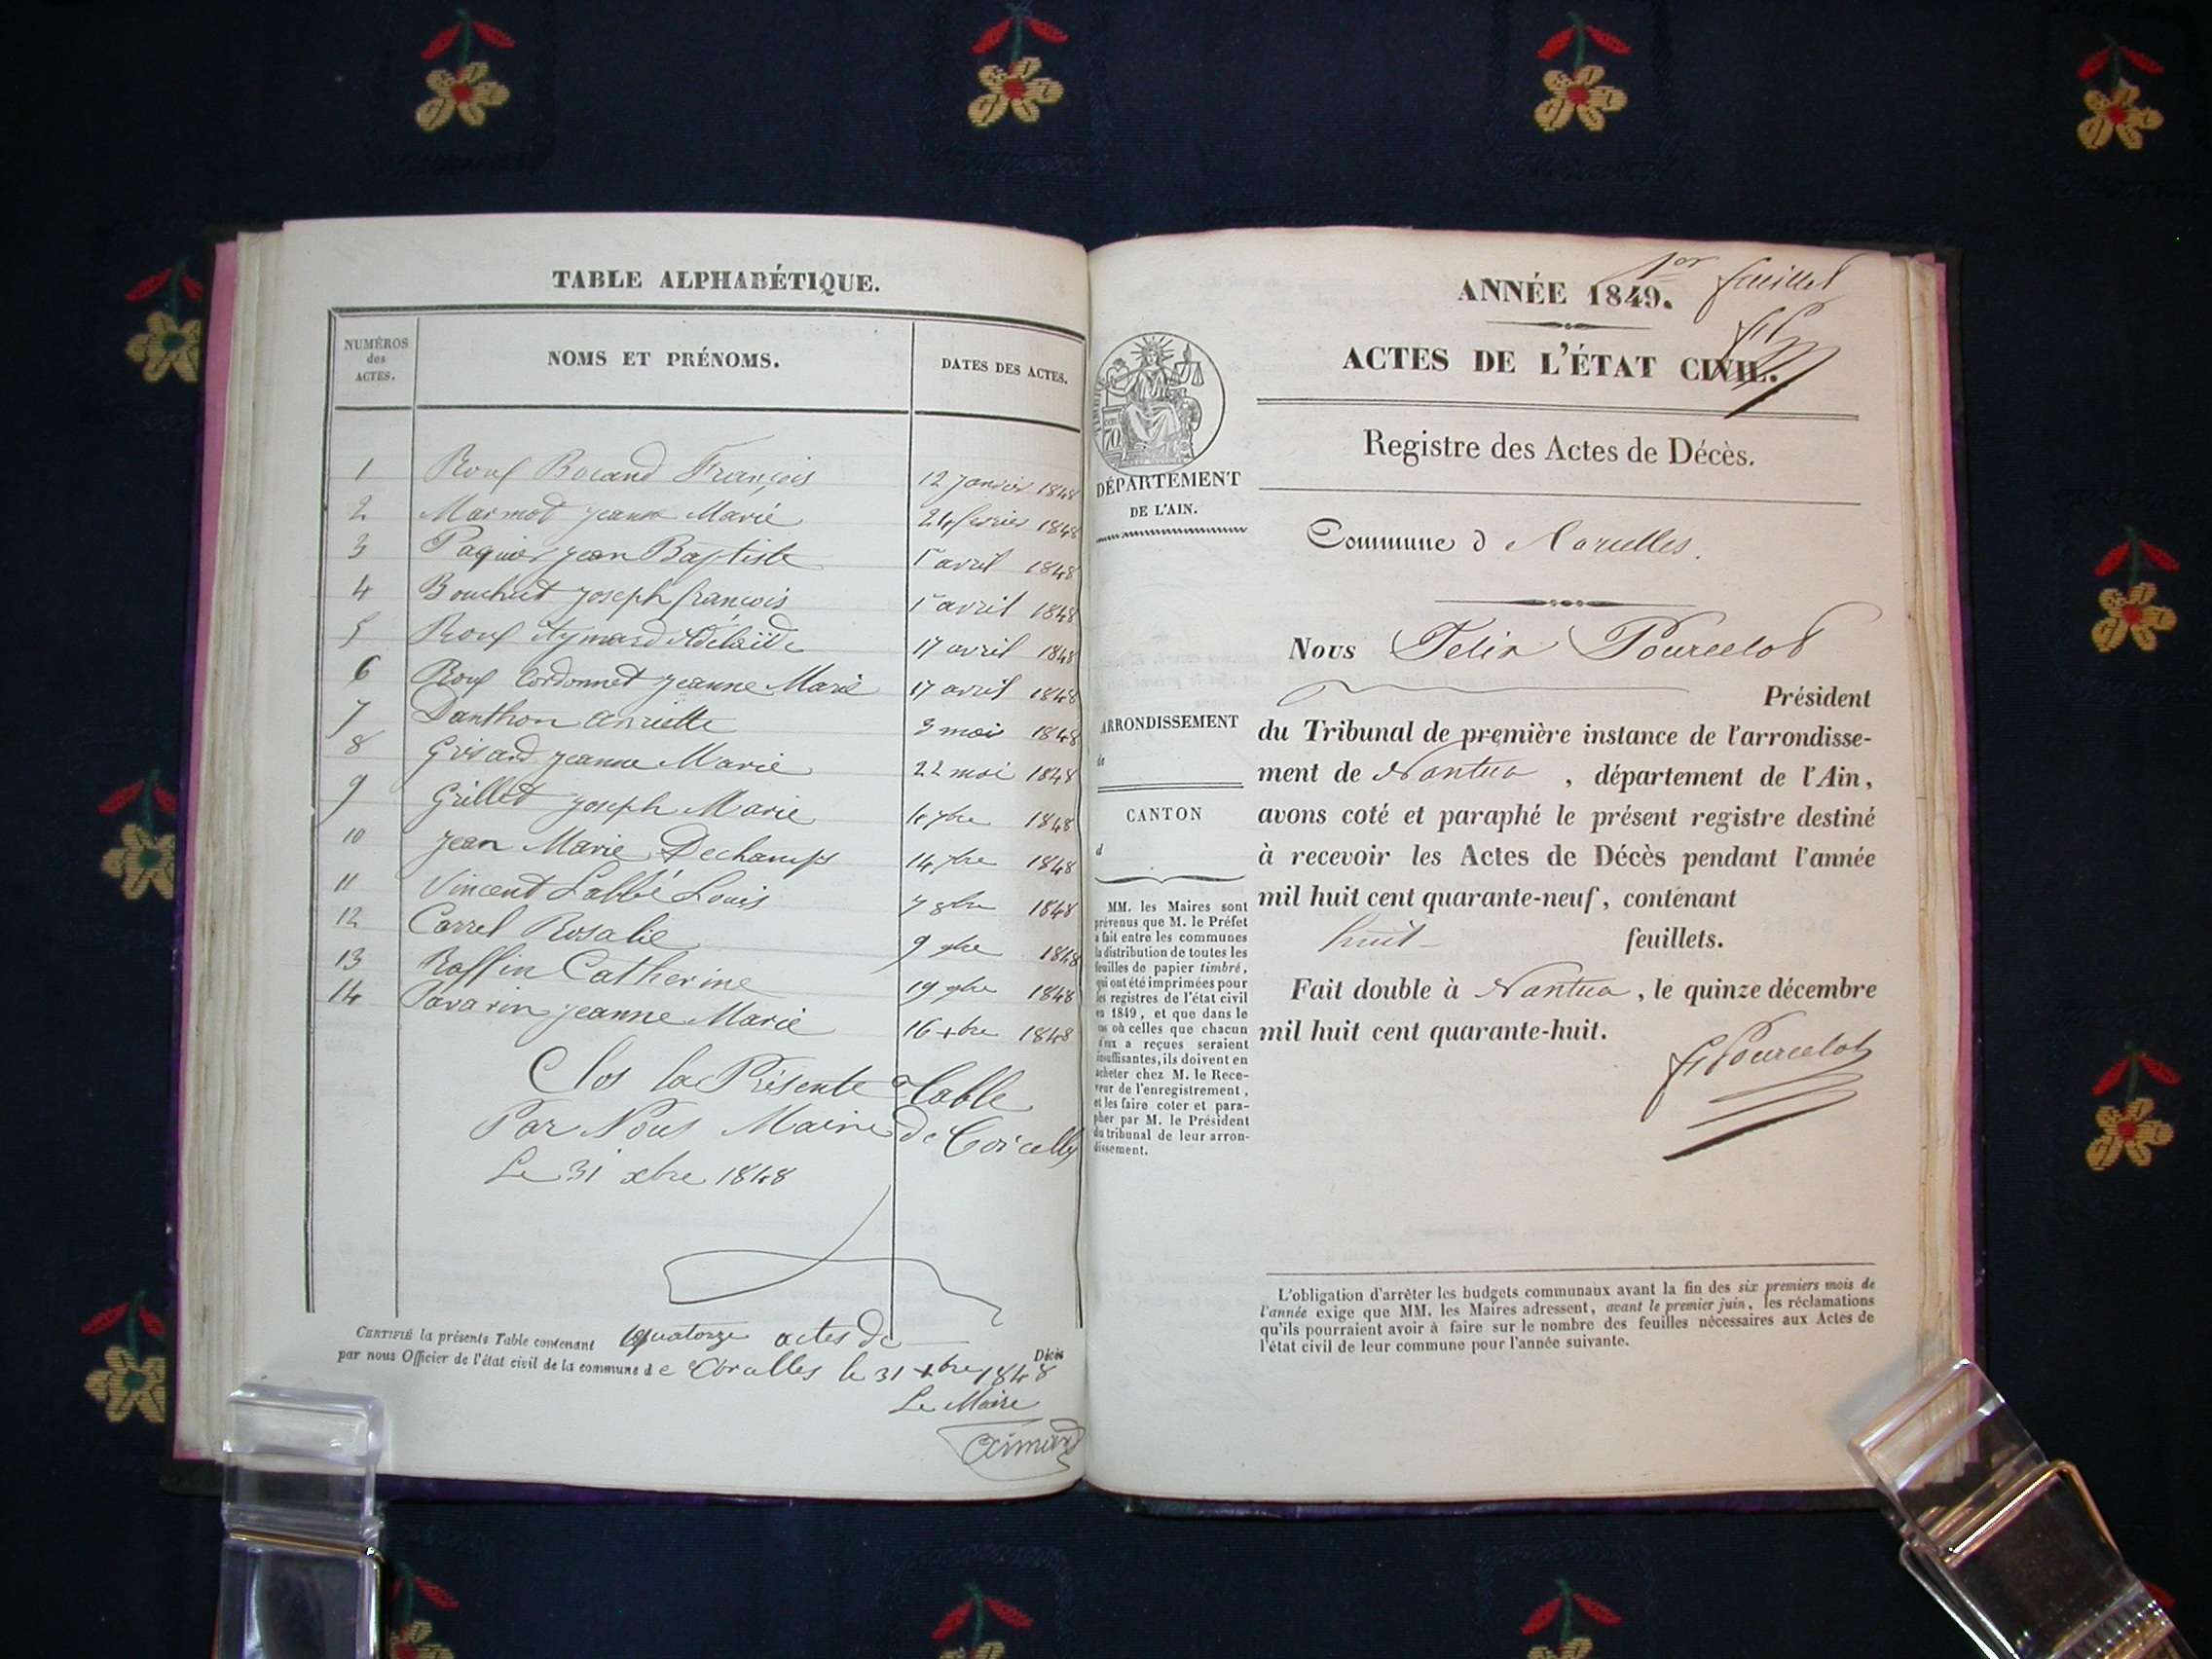 TABLE ALPHABÉTIQUE.
NUMÉROS des ACTES. NOMS ET PRÉNOMS. DATES DES ACTES.
1 Roux Bocand François 12 janvier 1848
2 Marmot jeanne Marie 24 fevrier 1848
3 Paquier jean Baptiste 1er avril 1848
4 Bouchut joseph françois 1er avril 1848
5 Roux Aymard Adélaïde 17 avril 1848
6 Roux Cordonnet jeanne Marie 17 avril 1848
7 Danthon 3 mai 1848
8 Grisard jeanne Marie 22 mai 1848
9 Grillet joseph Marie 7bre 1848
10 jean Marie Dechamps 14 7bre 1848
11 Vincent Labbé Louis 7 8bre 1848
12 Carrel Rosalie 9 9bre 1848
13 Raffin Catherine 19 9bre 1848
14 Pavarin jeanne Marie 16 xbre 1848
Clos la Présente Table
Par Nous Maire de Corcelles
Le 31 xbre 1848
CERTIFIÉ la présente Table contenant quatorze actes de Décès
par nous Officier de l'état civil de la commune de Corcelles le 31 xbre 1848
Le Maire
1er feuillet
ANNÉE 1849.
ACTES DE L'ÉTAT CIVIL.
Registre des Actes de Décès.
DÉPARTEMENT
DE L'AIN.
Commune d
ARRONDISSEMENT
de
CANTON
d
MM. les Maires sont
prévenus que M. le Préfet
a fait entre les communes
la distribution de toutes les
feuilles de papier timbré,
qui ont été imprimées pour
les registres de l'état civil
en 1849, et que dans le
cas où celles que chacun
d'eux a reçues seraient
insuffisantes, ils doivent en
acheter chez M. le Rece-
veur de l'enregistrement,
et les faire coter et para-
pher par M. le Président
du tribunal de leur arron-
dissement.
Nous Felix Pourcelot
Président
du Tribunal de première instance de l'arrondisse-
ment de Nantua, département de l'Ain,
avons coté et paraphé le présent registre destiné
à recevoir les Actes de Décès pendant l'année
mil huit cent quarante-neuf, contenant
huit feuillets.
Fait double à Nantua, le quinze décembre
mil huit cent quarante-huit.
F. Pourcelot
L'obligation d'arrêter les budgets communaux avant la fin des six premiers mois de
l'année exige que MM. les Maires adressent, avant le premier juin, les réclamations
qu'ils pourraient avoir à faire sur le nombre des feuilles nécessaires aux Actes de
l'état civil de leur commune pour l'année suivante.